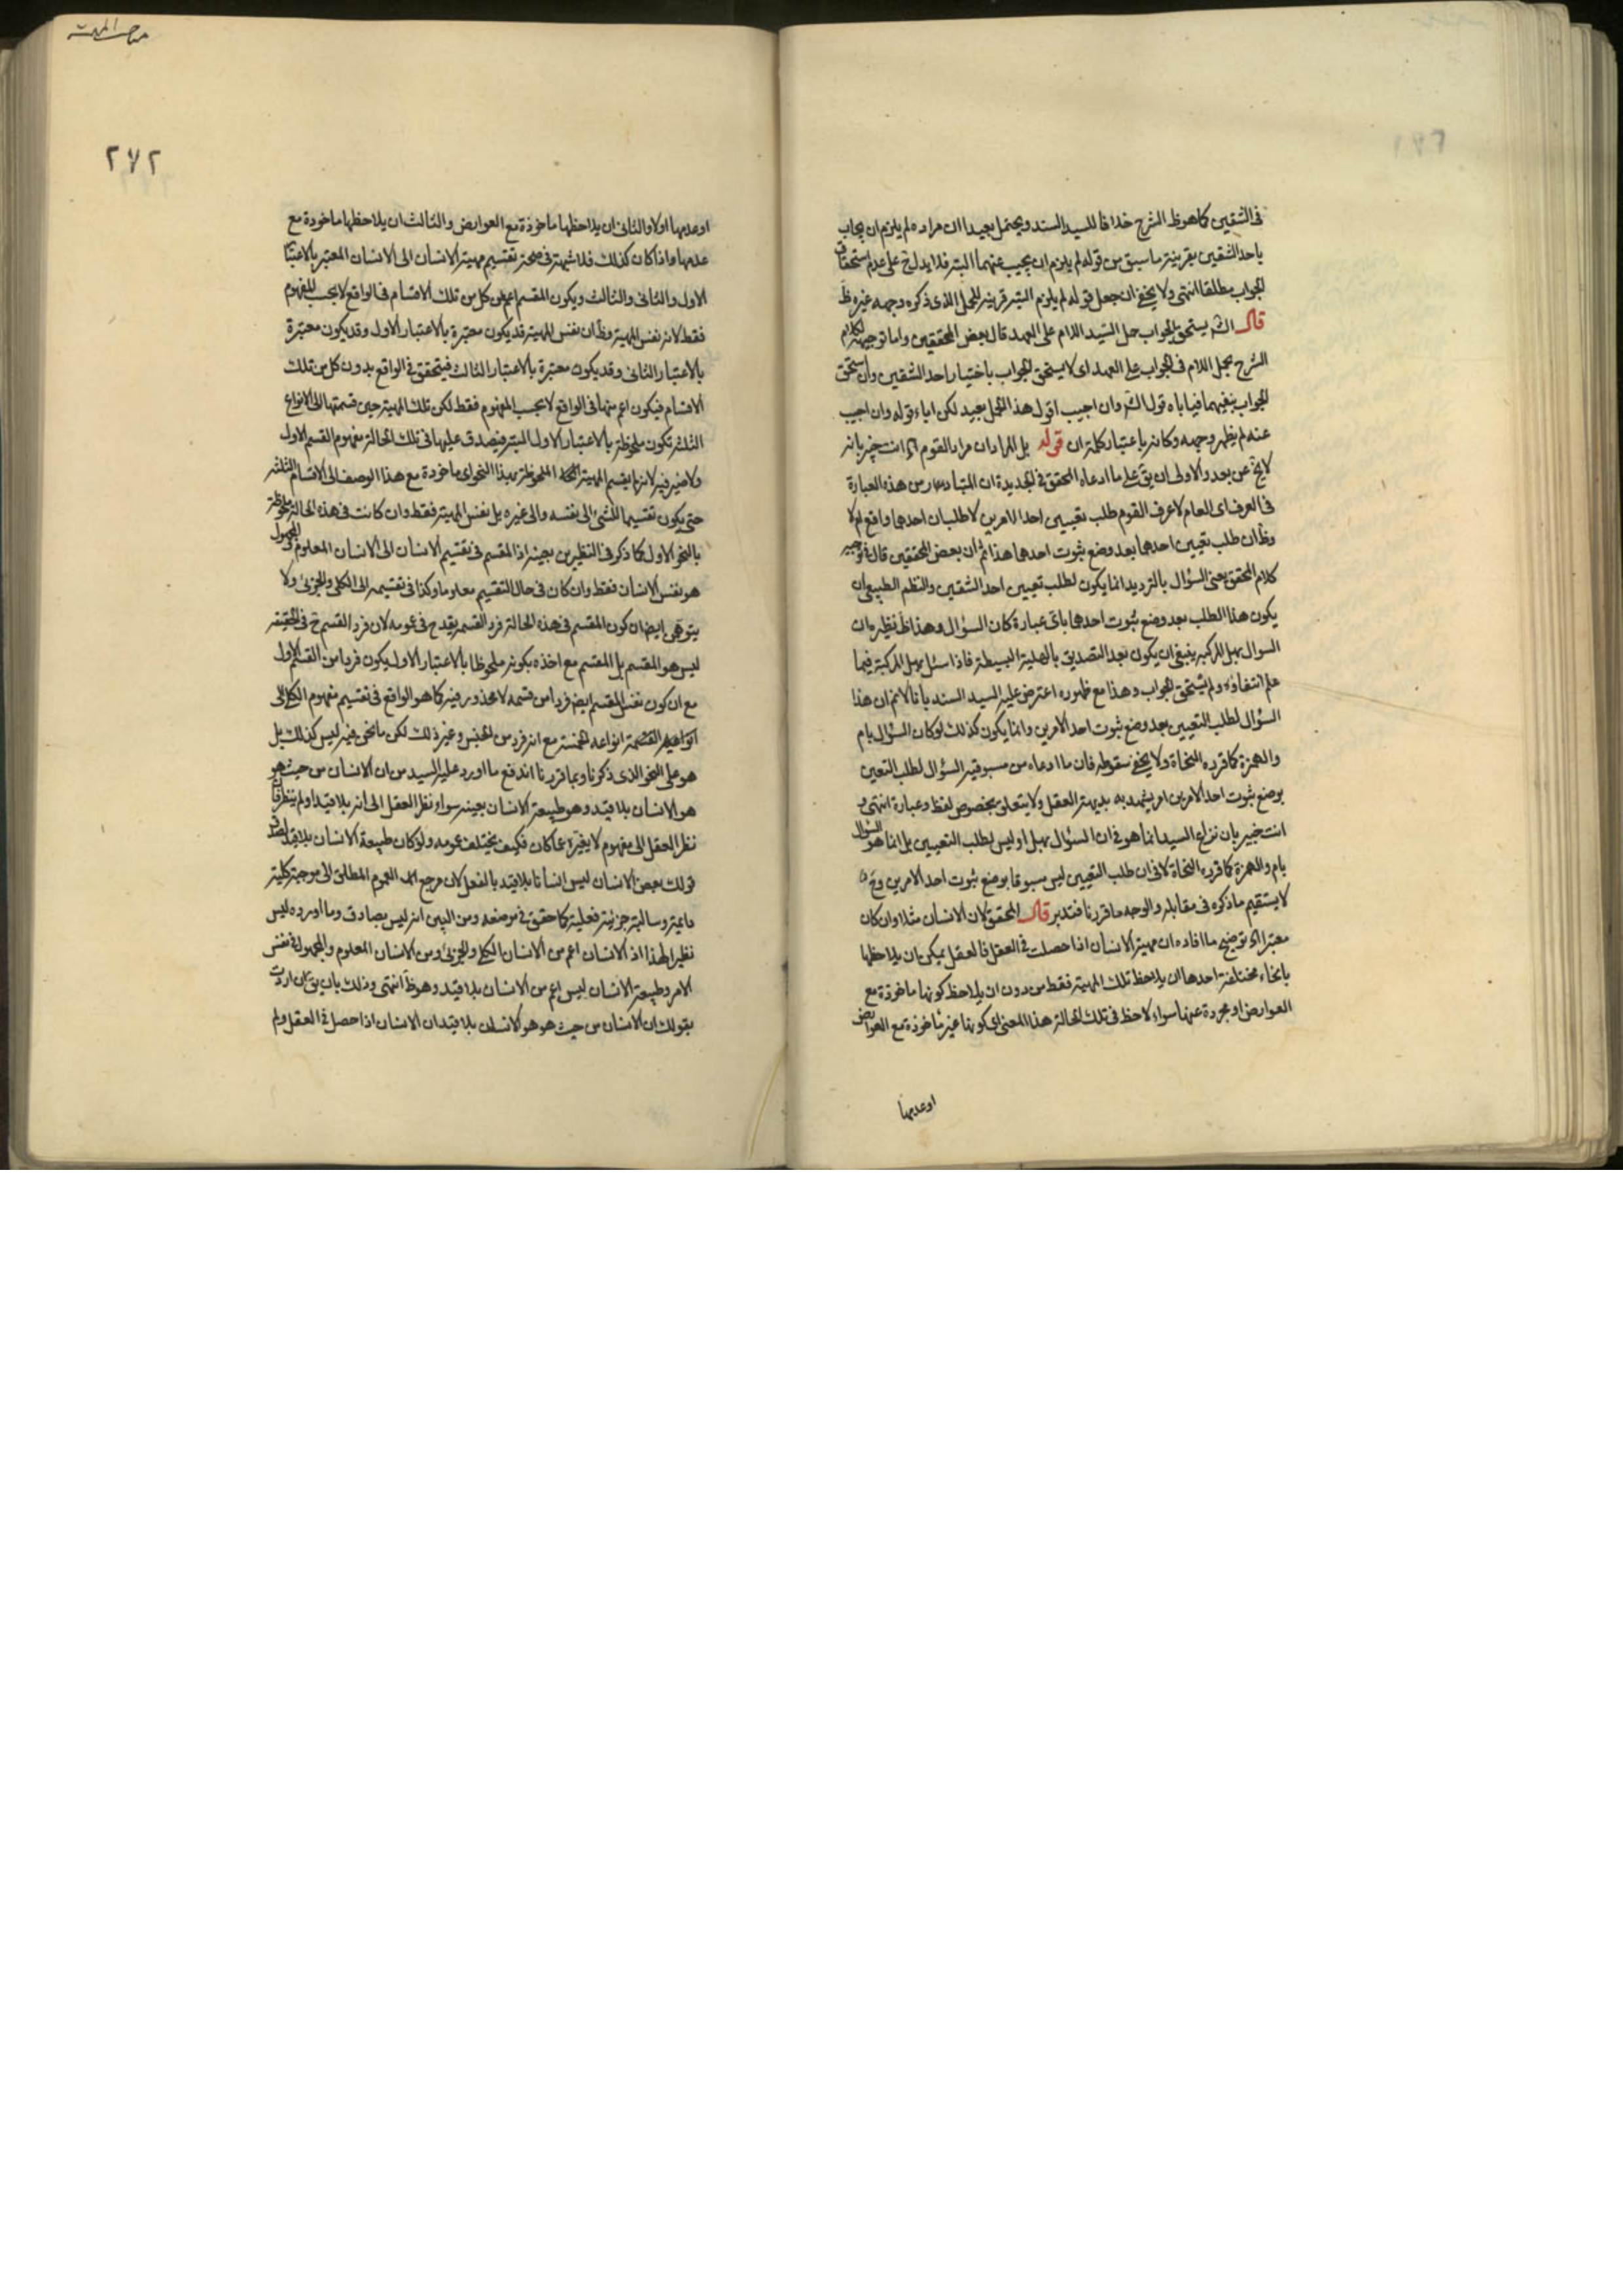 فى الشقين كما هو ظ الشرح خلافا للسيد السند ويحتمل بعيدا ان مراده لم يلزم ان يجاب
باحد الشقين بقرينة ما سبق من قوله لم يلزم ان يجيب عنهما البتة فلا يدل ح على عدم استحقاق
الجواب مطلقا انتهى ولا يخفى ان جعل قوله لم يلزم البتة قرينة للحمل الذى ذكره وجهه غير ظ
قال الش يستحق الجواب حمل السيد اللام على العهد قال بعض المحققين واما توجيهه لكلام
الشرح بحمل اللام فى الجواب على العهد اى لا يستحق الجواب باختيار احد الشقين وان استحق
الجواب بنفيهما فياباه قول الش وان اجيب اقول هذا الحمل بعيد لكن اباء قوله وان اجيب
عنه لم يظهر وجهه وكانه باعتبار كلمة ان قوله بل المراد ان مراد القوم اه انت خبير بانه
لا يخ عن بعد والاولى ان يق على ما ادعاه المحقق فى الجديدة ان المتبادر من هذه العبارة
فى العرف اى العام لا عرف القوم طلب تعيين احد الامرين لا طلب ان احدهما واقع ام لا
وظ ان طلب تعيين احدهما بعد وضع ثبوت احدهما هذا ثم ان بعض المحققين قال فى توجيه
كلام المحقق يعنى السؤال بالترديد انما يكون لطلب تعيين احد الشقين والنظم الطبيعى ان
يكون هذا الطلب بعد وضع ثبوت احدهما باى عبارة كان السؤال وهذا ظ نظيره ان
السوال بهل المركبة ينبغى ان يكون بعد التصديق بالهلية البسيطة فاذا سئل بهل المركبة فيما
علم انتفاؤه لم يستحق الجواب وهذا مع ظهوره اعترض عليه السيد السند بانا لا نم ان هذا
السؤال لطلب التعيين بعد وضع ثبوت احد الامرين وانما يكون كذلك لو كان السؤال بام
والهمزة كما قرره النحاة ولا يخفى سقوطه فان ما ادعاه من مسبوقية السؤال لطلب التعين
بوضع ثبوت احد الامرين امر يشهد به بديهة العقل ولا يتعلق بخصوص لفظ وعبارة انتهى و
انت خبير بان نزاع السيد انما هو فى ان السؤال بهل او ليس لطلب التعيين بل انما هو السؤال
بام والهمزة كما قرره النحاة لا فى ان طلب التعيين ليس مسبوقا بوضع ثبوت احد الامرين وح
لا يستقيم ما ذكره فى مقابله والوجه ما قررنا فتدبر قال المحقق لان الانسان مثلا وان كان
معتبرا اه توضيح ما افاده ان مهية الانسان اذا حصلت فى العقل فالعقل يمكن ان يلاحظها
بانحاء مختلفة احدها ان يلاحظ تلك المهية فقط من دون ان يلاحظ كونها ماخوذة مع
العوارض او مجردة عنها سواء لاحظ فى تلك الحالة هذا المعنى اى كونها غير ماخوذة مع العوارض
او عدمها
مباحث المهية
٢٧٢
او عدمها اولا والثانى ان يلاحظها ماخوذة مع العوارض والثالث ان يلاحظها ماخوذة مع
عدمها واذا كان كذلك فلا شبهة فى صحة تقسيم مهية الانسان الى الانسان المعتبر بالاعتبار
الاول والثانى والثالث ويكون المقسم اعم من كل من تلك الاقسام فى الواقع لا بحسب المفهوم
فقط لانه نفس المهية وظ ان نفس المهية قد يكون معتبرة بالاعتبار الاول وقد يكون معتبرة
بالاعتبار الثانى وقد يكون معتبرة بالاعتبار الثالث فيتحقق فى الواقع بدون كل من تلك
الاقسام فيكون اعم منها فى الواقع لا بحسب المفهوم فقط لكن تلك المهية حين قسمتها الى الانواع
الثلثة تكون ملحوظة بالاعتبار الاول البتة فيصدق عليها فى تلك الحالة مفهوم القسم الاول
ولا ضير فيه لانه لم يقسم المهية الملحوظة بهذا النحو اى ماخوذة مع هذا الوصف الى الاقسام الثلثة
حتى يكون تقسيما للشئ الى نفسه والى غيره بل نفس المهية فقط وان كانت فى هذه الحالة ملحوظة
بالنحو الاول كما ذكر فى النظيرين بعينه اذ المقسم فى تقسيم الانسان الى الانسان المعلوم والمجهول
هو نفس الانسان فقط وان كان فى حال التقسيم معلوما وكذا فى تقسيمه الى الكلى والجزئى ولا
يتوهم ايضا ان كون المقسم فى هذه الحالة فرد القسمه يقدح فى عمومه لان فرد القسم ح فى الحقيقة
ليس هو المقسم بل المقسم مع اخذه بكونه ملحوظا بالاعتبار الاول يكون فردا من القسم الاول
مع ان كون نفس المقسم ايضا فردا من قسمه لا محذور فيه كما هو الواقع فى تقسيم مفهوم الكلى الى
انواعه الخمسة مع انه فرد من الجنس وغير ذلك لكن ما نحن فيه ليس كذلك بل
هو على النحو الذى ذكرنا وبما قررنا اندفع ما اورد عليه السيد من ان الانسان من حيث هو
هو الانسان بلا قيد وهو طبيعة الانسان بعينه سواء نظر العقل الى انه بلا قيد او لم ينظر فان
نظر العقل الى مفهوم لا يغيره عما كان فكيف يختلف عمومه ولو كان طبيعة الانسان بلا قيد لصدق
قولك بعض الانسان ليس انسانا بلا قيد بالفعل لان مرجع العموم المطلق الى موجبة كلية
دايمة وسالبة جزئية فعلية كما حقق فى موضعه ومن البين انه ليس بصادق وما اورده ليس
نظيرا لهذا اذ الانسان اعم من الانسان الكلى والجزئى ومن الانسان المعلوم والمجهول فى نفس
الامر وطبيعة الانسان ليس اعم من الانسان بلا قيد وهو ظ انتهى وذلك بان يق ان اردت
بقولك ان الانسان من حيث هو هو الانسان بلا قيد ان الانسان اذا حصل فى العقل ولم